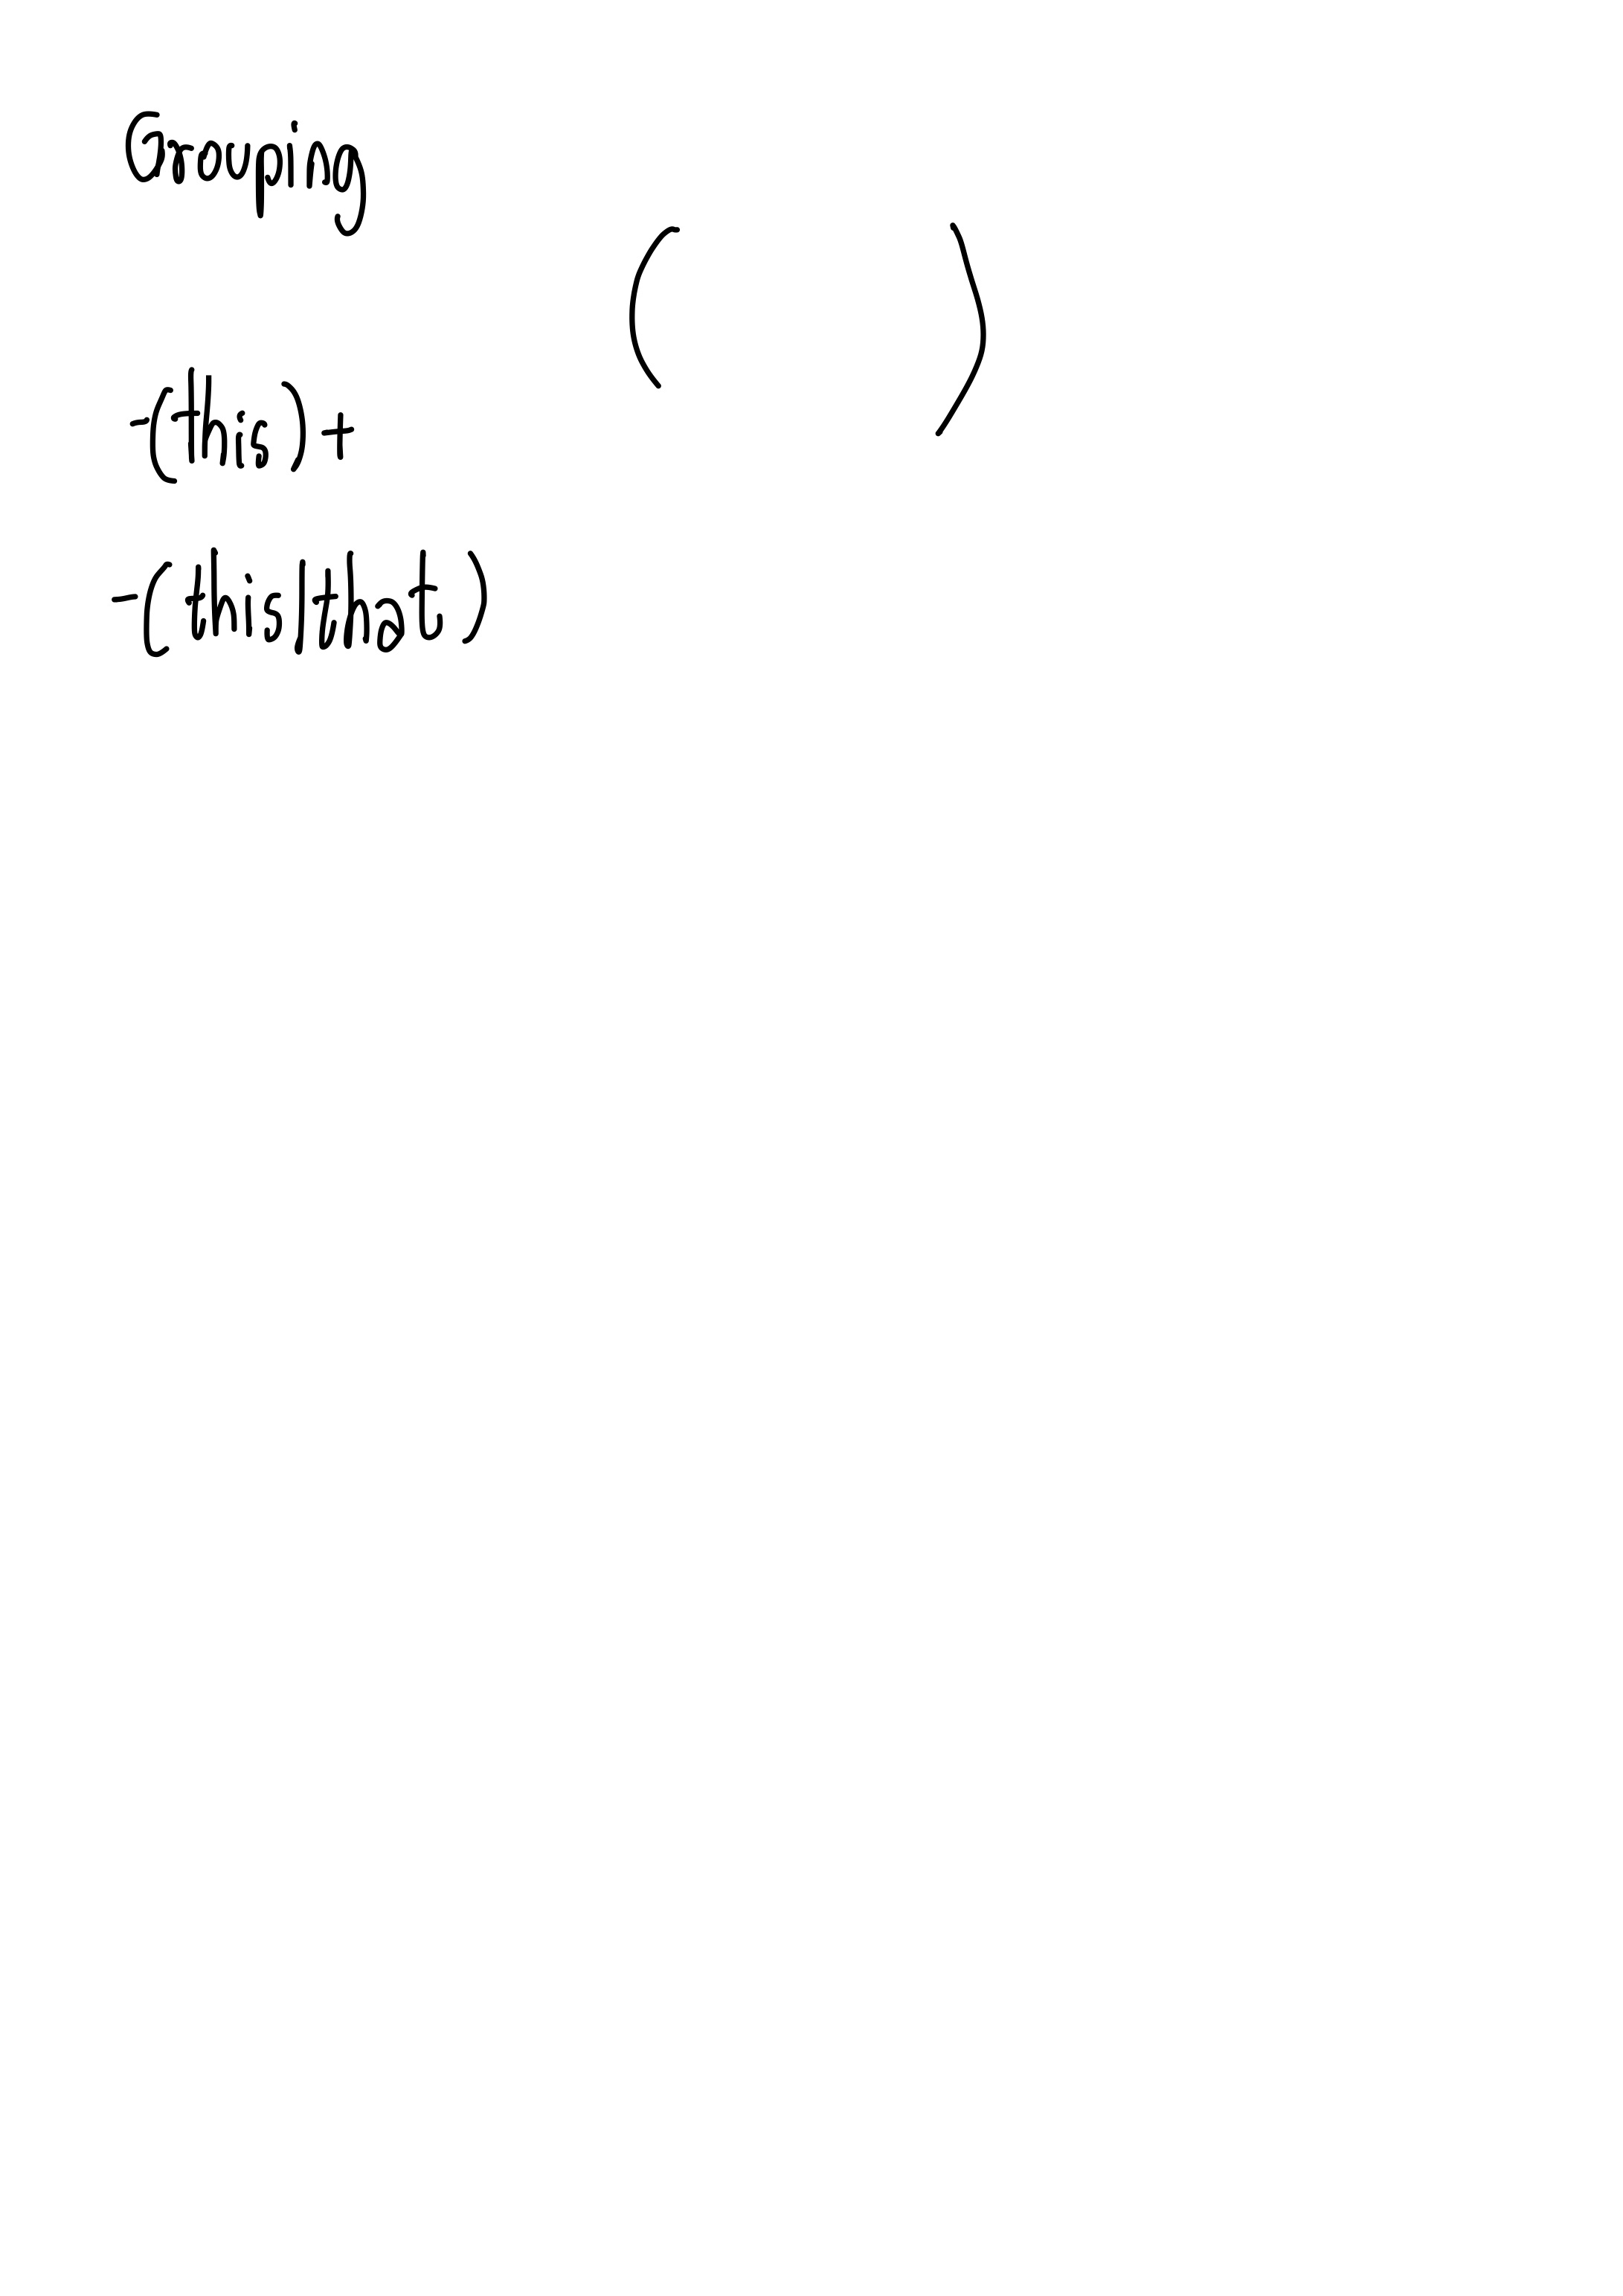 Grouping
(            )
-(this)+
-(this|that)